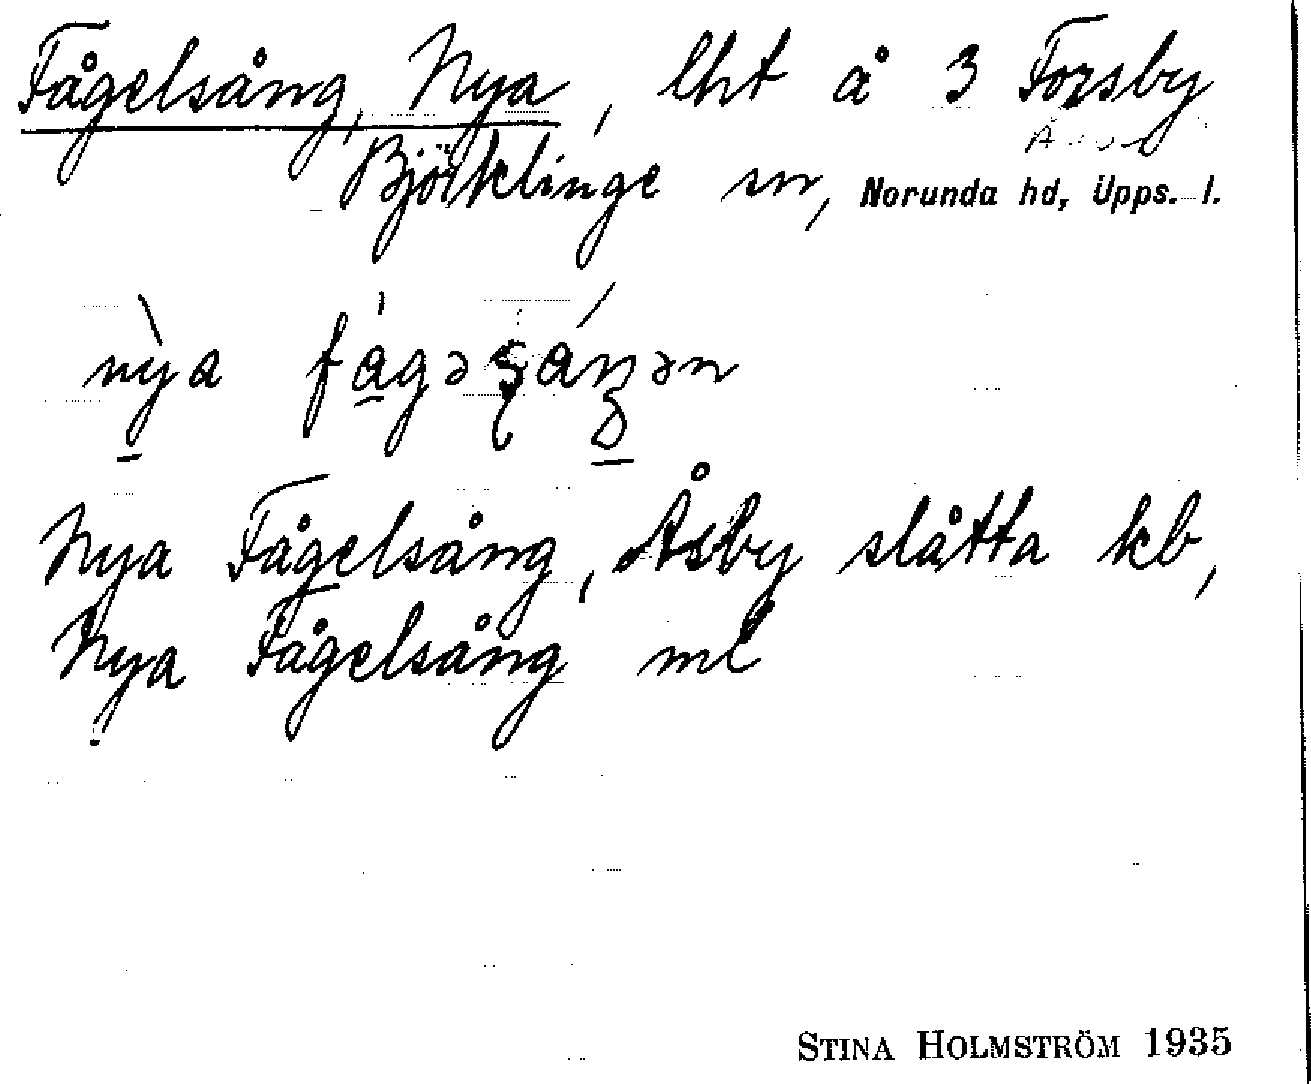 Fågelsång, Nya, lht å 3 Forsby
Björklinge sn, Norunda hd, Upps. l.
nỳa
Nya Fågelsång, Åsby slåtta kb,
Nya Fågelsång ml
STINA HOLMSTRÖM 1935